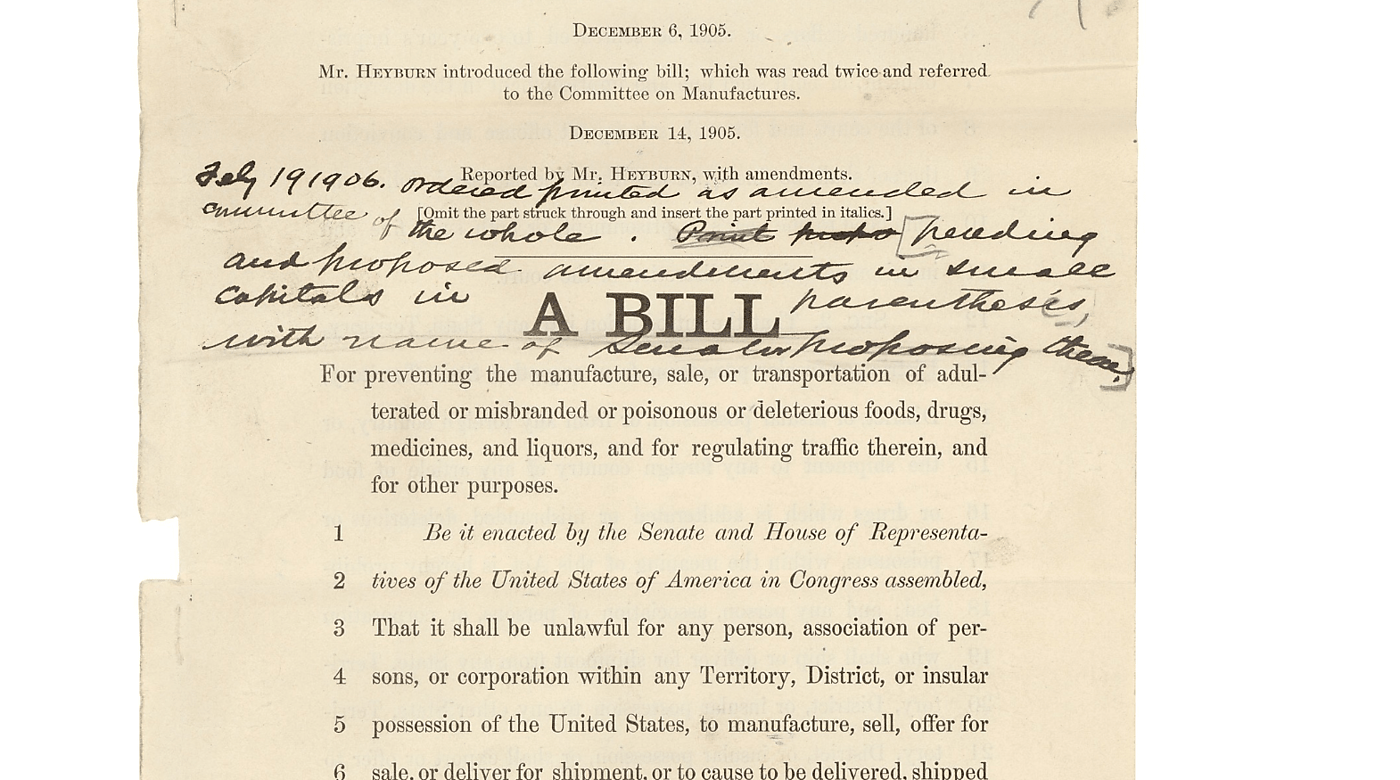 DECEMBER 6, 1905.
Mr. HEYBURN introduced the following bill; which was read twice and referred
to the Committee on Manufactures.
DECEMBER 14, 1905.
Reported by Mr. HEYBURN, with amendments.
Feby 19 1906. ordered printed as amended in
[Omit the part struck through and insert the part printed in italics.]
committee of the whole. Print [pending
and proposed amendments in small
capitals in parenthesis,
A BILL
with name of Senator proposing them]
For preventing the manufacture, sale, or transportation of adul-
terated or misbranded or poisonous or deleterious foods, drugs,
medicines, and liquors, and for regulating traffic therein, and
for other purposes.
1 Be it enacted by the Senate and House of Representa-
2 tives of the United States of America in Congress assembled,
3 That it shall be unlawful for any person, association of per-
4 sons, or corporation within any Territory, District, or insular
5 possession of the United States, to manufacture, sell, offer for
6 sale, or deliver for shipment, or to cause to be delivered, shipped